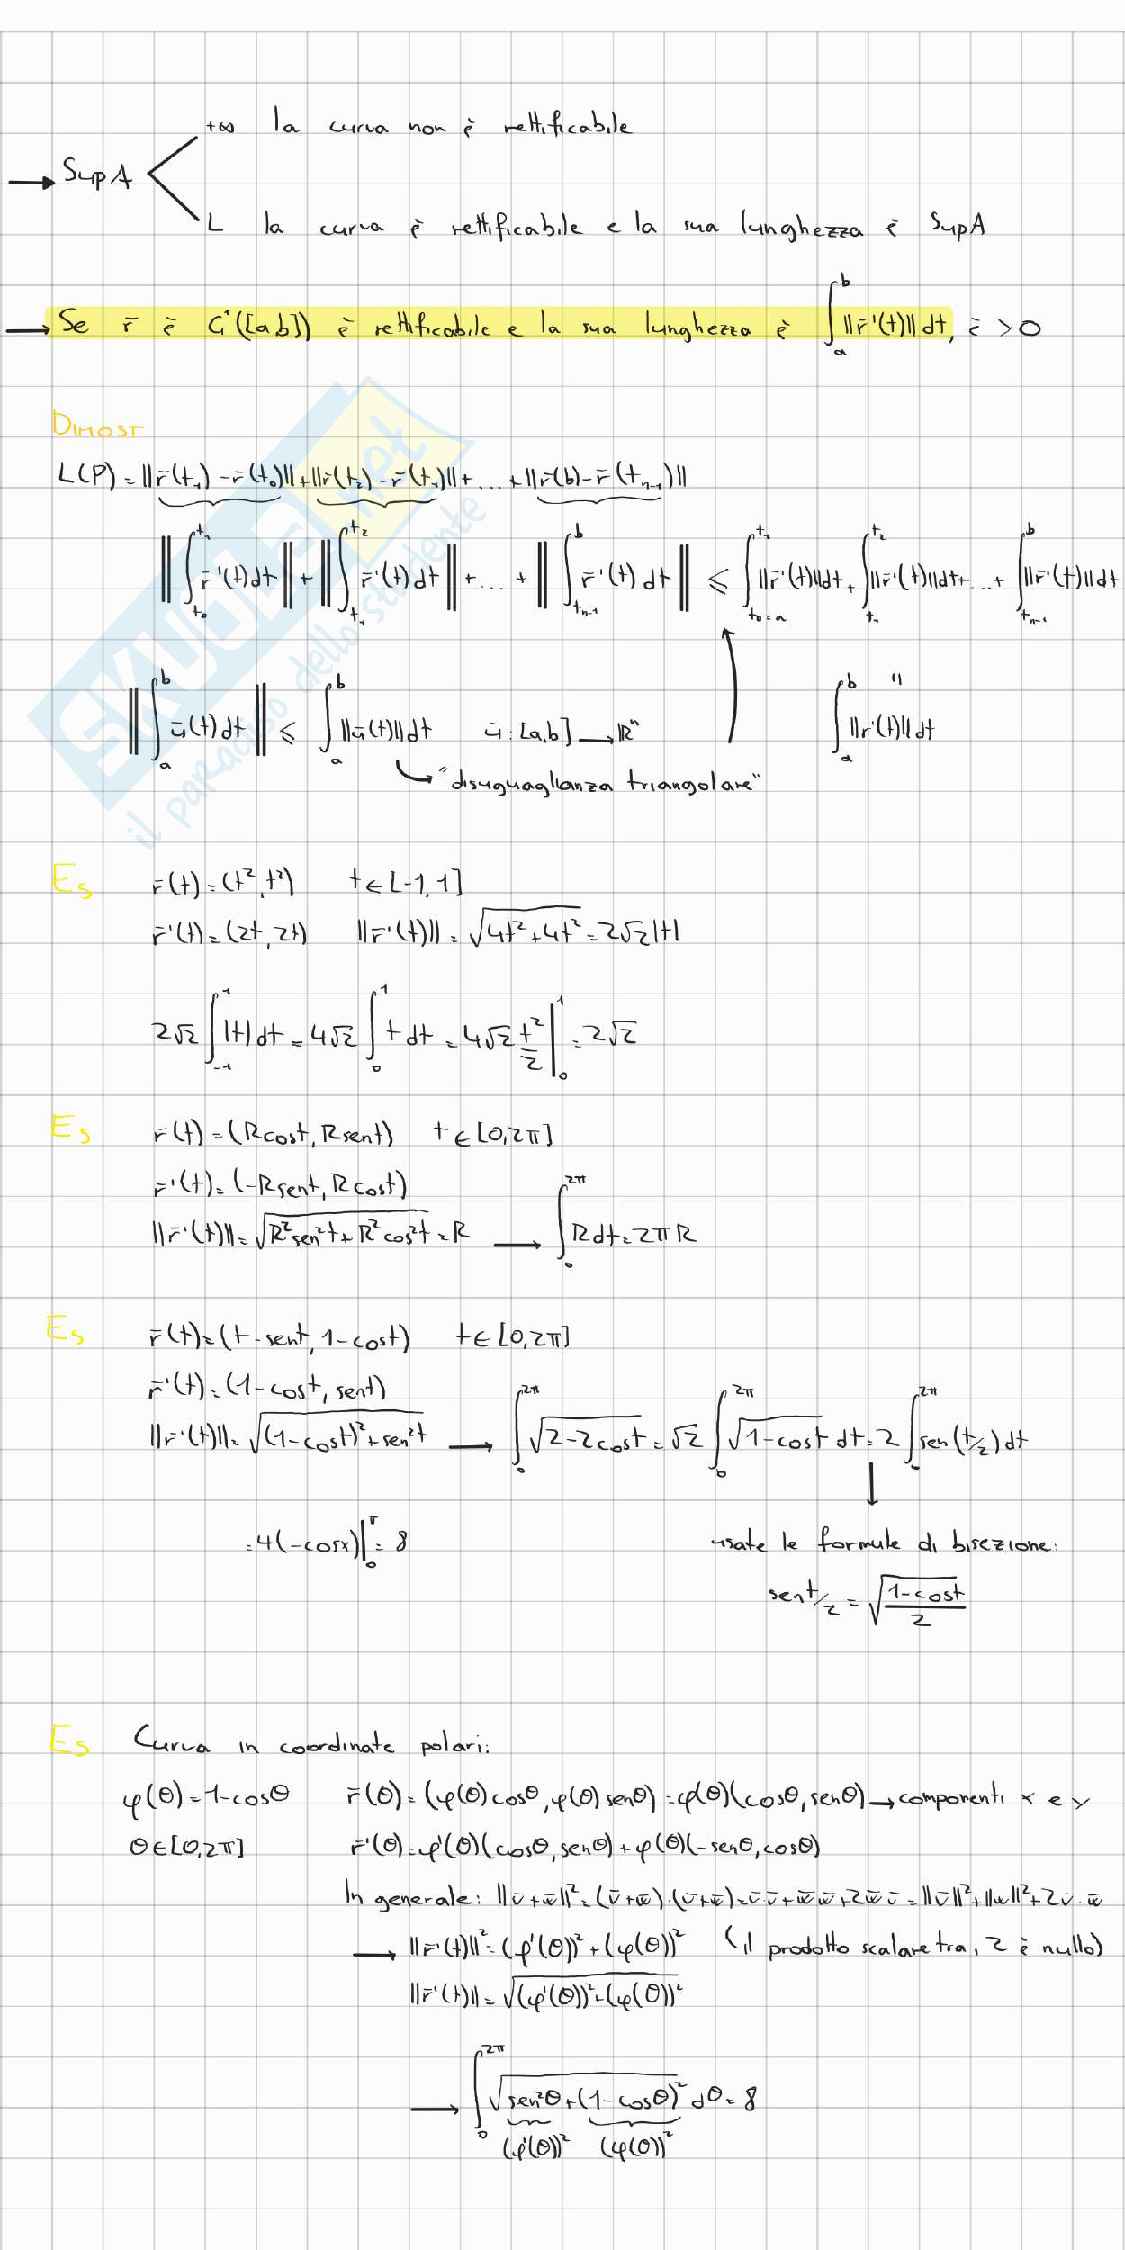 +∞ la curva non è rettificabile
→ SupA
L la curva è rettificabile e la sua lunghezza è SupA
→ Se r̄ è C¹([a,b]) è rettificabile e la sua lunghezza è ∫_a^b ||r̄'(t)|| dt, è >0
Dimost
L(P) = ||r̄(t₁) - r̄(t₀)|| + ||r̄(t₂) - r̄(t₁)|| + ... + ||r̄(b) - r̄(t_{n-1})||
||∫_{t₀}^{t₁} r̄'(t) dt|| + ||∫_{t₁}^{t₂} r̄'(t) dt|| + ... + ||∫_{t_{n-1}}^b r̄'(t) dt|| ≤ ∫_{t₀=a}^{t₁} ||r̄'(t)|| dt + ∫_{t₁}^{t₂} ||r̄'(t)|| dt + ... + ∫_{t_{n-1}}^b ||r̄'(t)|| dt
||∫_a^b ū(t) dt|| ≤ ∫_a^b ||ū(t)|| dt ū: [a,b] → ℝⁿ " ∫_a^b ||r'(t)|| dt
↳ "disuguaglianza triangolare"
SKUOLA.net
il paradiso dello studente
Es r̄(t) = (t², t²) t ∈ [-1, 1]
r̄'(t) = (2t, 2t) ||r̄'(t)|| = √(4t² + 4t²) = 2√2 |t|
2√2 ∫_{-1}^1 |t| dt = 4√2 ∫_0^1 t dt = 4√2 t²/2 |_0^1 = 2√2
Es r̄(t) = (R cost, R sent) t ∈ [0, 2π]
r̄'(t) = (-R sent, R cost)
||r̄'(t)|| = √(R² sen²t + R² cos²t) = R → ∫_0^{2π} R dt = 2πR
Es r̄(t) = (t - sent, 1 - cost) t ∈ [0, 2π]
r̄'(t) = (1 - cost, sent)
||r̄'(t)|| = √((1 - cost)² + sen²t) → ∫_0^{2π} √(2 - 2cost) = √2 ∫_0^{2π} √(1 - cost) dt = 2 ∫_0^{2π} sen(t/2) dt
= 4(-cosx)|_0^π = 8 usate le formule di bisezione:
sen t/2 = √((1 - cost)/2)
Es Curva in coordinate polari:
φ(θ) = 1 - cosθ r̄(θ) = (φ(θ) cosθ, φ(θ) senθ) = φ(θ)(cosθ, senθ) → componenti x e y
θ ∈ [0, 2π] r̄'(θ) = φ'(θ)(cosθ, senθ) + φ(θ)(-senθ, cosθ)
In generale: ||v̄ + w̄||² = (v̄ + w̄)·(v̄ + w̄) = v̄·v̄ + w̄·w̄ + 2w̄·v̄ = ||v̄||² + ||w̄||² + 2v̄·w̄
→ ||r̄'(t)||² = (φ'(θ))² + (φ(θ))² (il prodotto scalare tra i 2 è nullo)
||r̄'(t)|| = √((φ'(θ))² + (φ(θ))²)
→ ∫_0^{2π} √(sen²θ + (1 - cosθ)²) dθ = 8
(φ'(θ))² (φ(θ))²